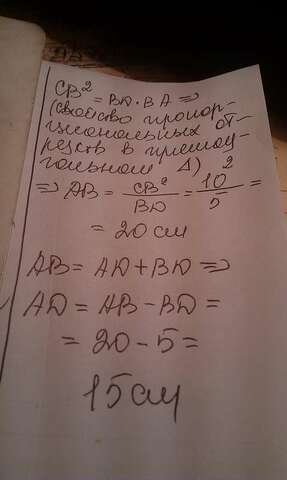 CB² = BD · BA ⇒
(свойство пропор-
циональных от-
резств в прямоу-
гольном Δ)
⇒ AB = CB²/BD = 10²/5 =
= 20 см
AB = AD + BD ⇒
AD = AB − BD =
= 20 − 5 =
15 см